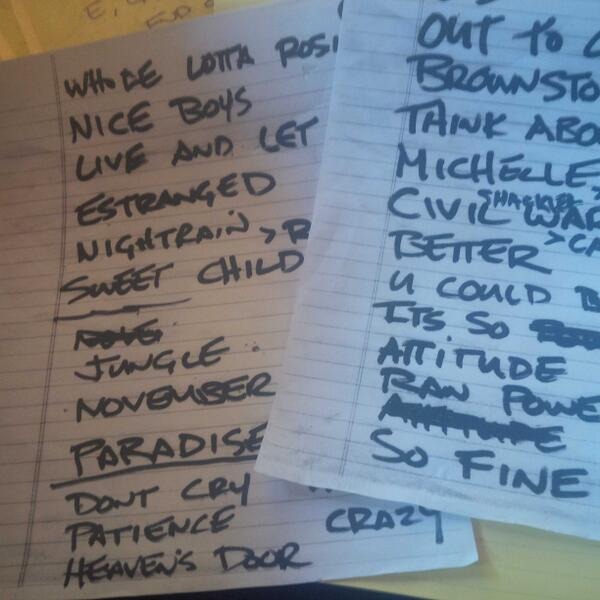 WHOLE LOTTA ROSI
NICE BOYS
LIVE AND LET
ESTRANGED
NIGHTRAIN > B
SWEET CHILD
JUNGLE
NOVEMBER
PARADISE
DONT CRY
PATIENCE CRAZY
HEAVEN'S DOOR
OUT TO
BROWNSTO
THINK ABO
MICHELLE >
SHACKLE
CIVIL WAR
BETTER > CA
U COULD B
ITS SO
ATTITUDE
RAW POWE
ATTITUDE
SO FINE